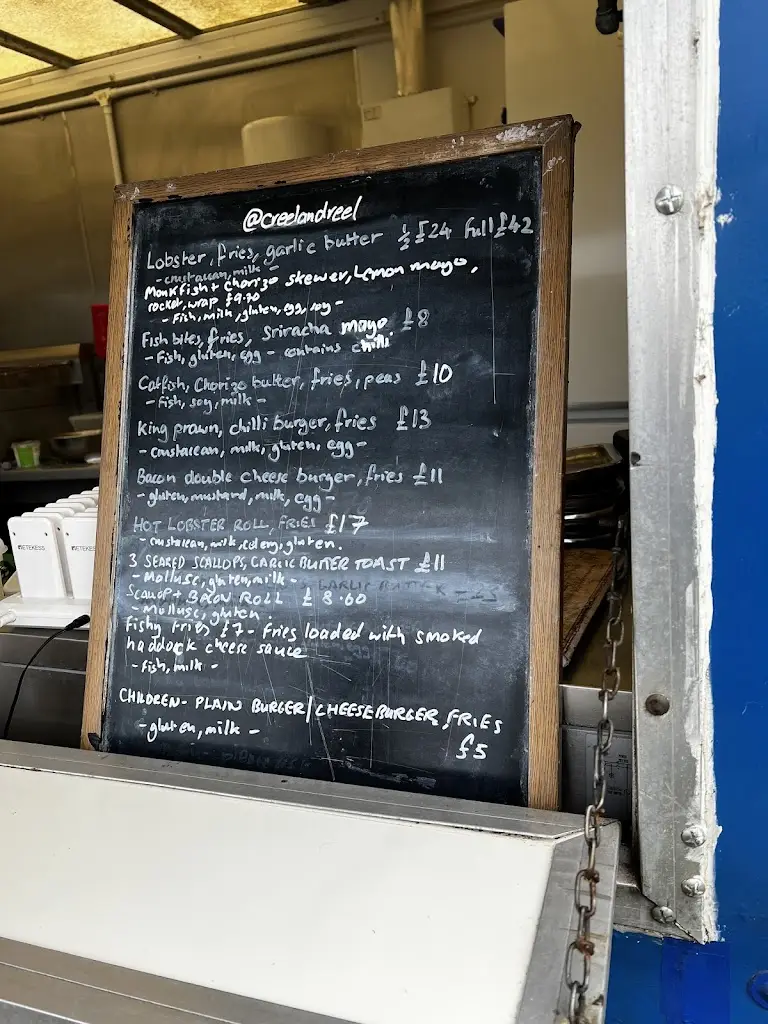 @creelandreel
Lobster, fries, garlic butter ½ £24 full £42
- crustacean, milk -
Monkfish + chorizo skewer, Lemon mayo,
rocket, wrap £9.20
- Fish, milk, gluten, egg, soy -
Fish bites, fries, Sriracha mayo £8
- Fish, gluten, egg - contains chilli
Catfish, Chorizo butter, fries, peas £10
- Fish, soy, milk -
King prawn, chilli burger, fries £13
- crustacean, milk, gluten, egg -
Bacon double cheese burger, fries £11
- gluten, mustard, milk, egg -
HOT LOBSTER ROLL, FRIES £17
- crustacean, milk, celery, gluten.
3 SEARED SCALLOPS, GARLIC BUTTER TOAST £11
- Mollusc, gluten, milk -
SCALLOP + BACON ROLL £8.60
- Mollusc, gluten
Fishy fries £7 - fries loaded with smoked
haddock cheese sauce
- fish, milk -
CHILDREN - PLAIN BURGER/CHEESEBURGER, FRIES
- gluten, milk -
£5
RETEKESS
RETEKESS